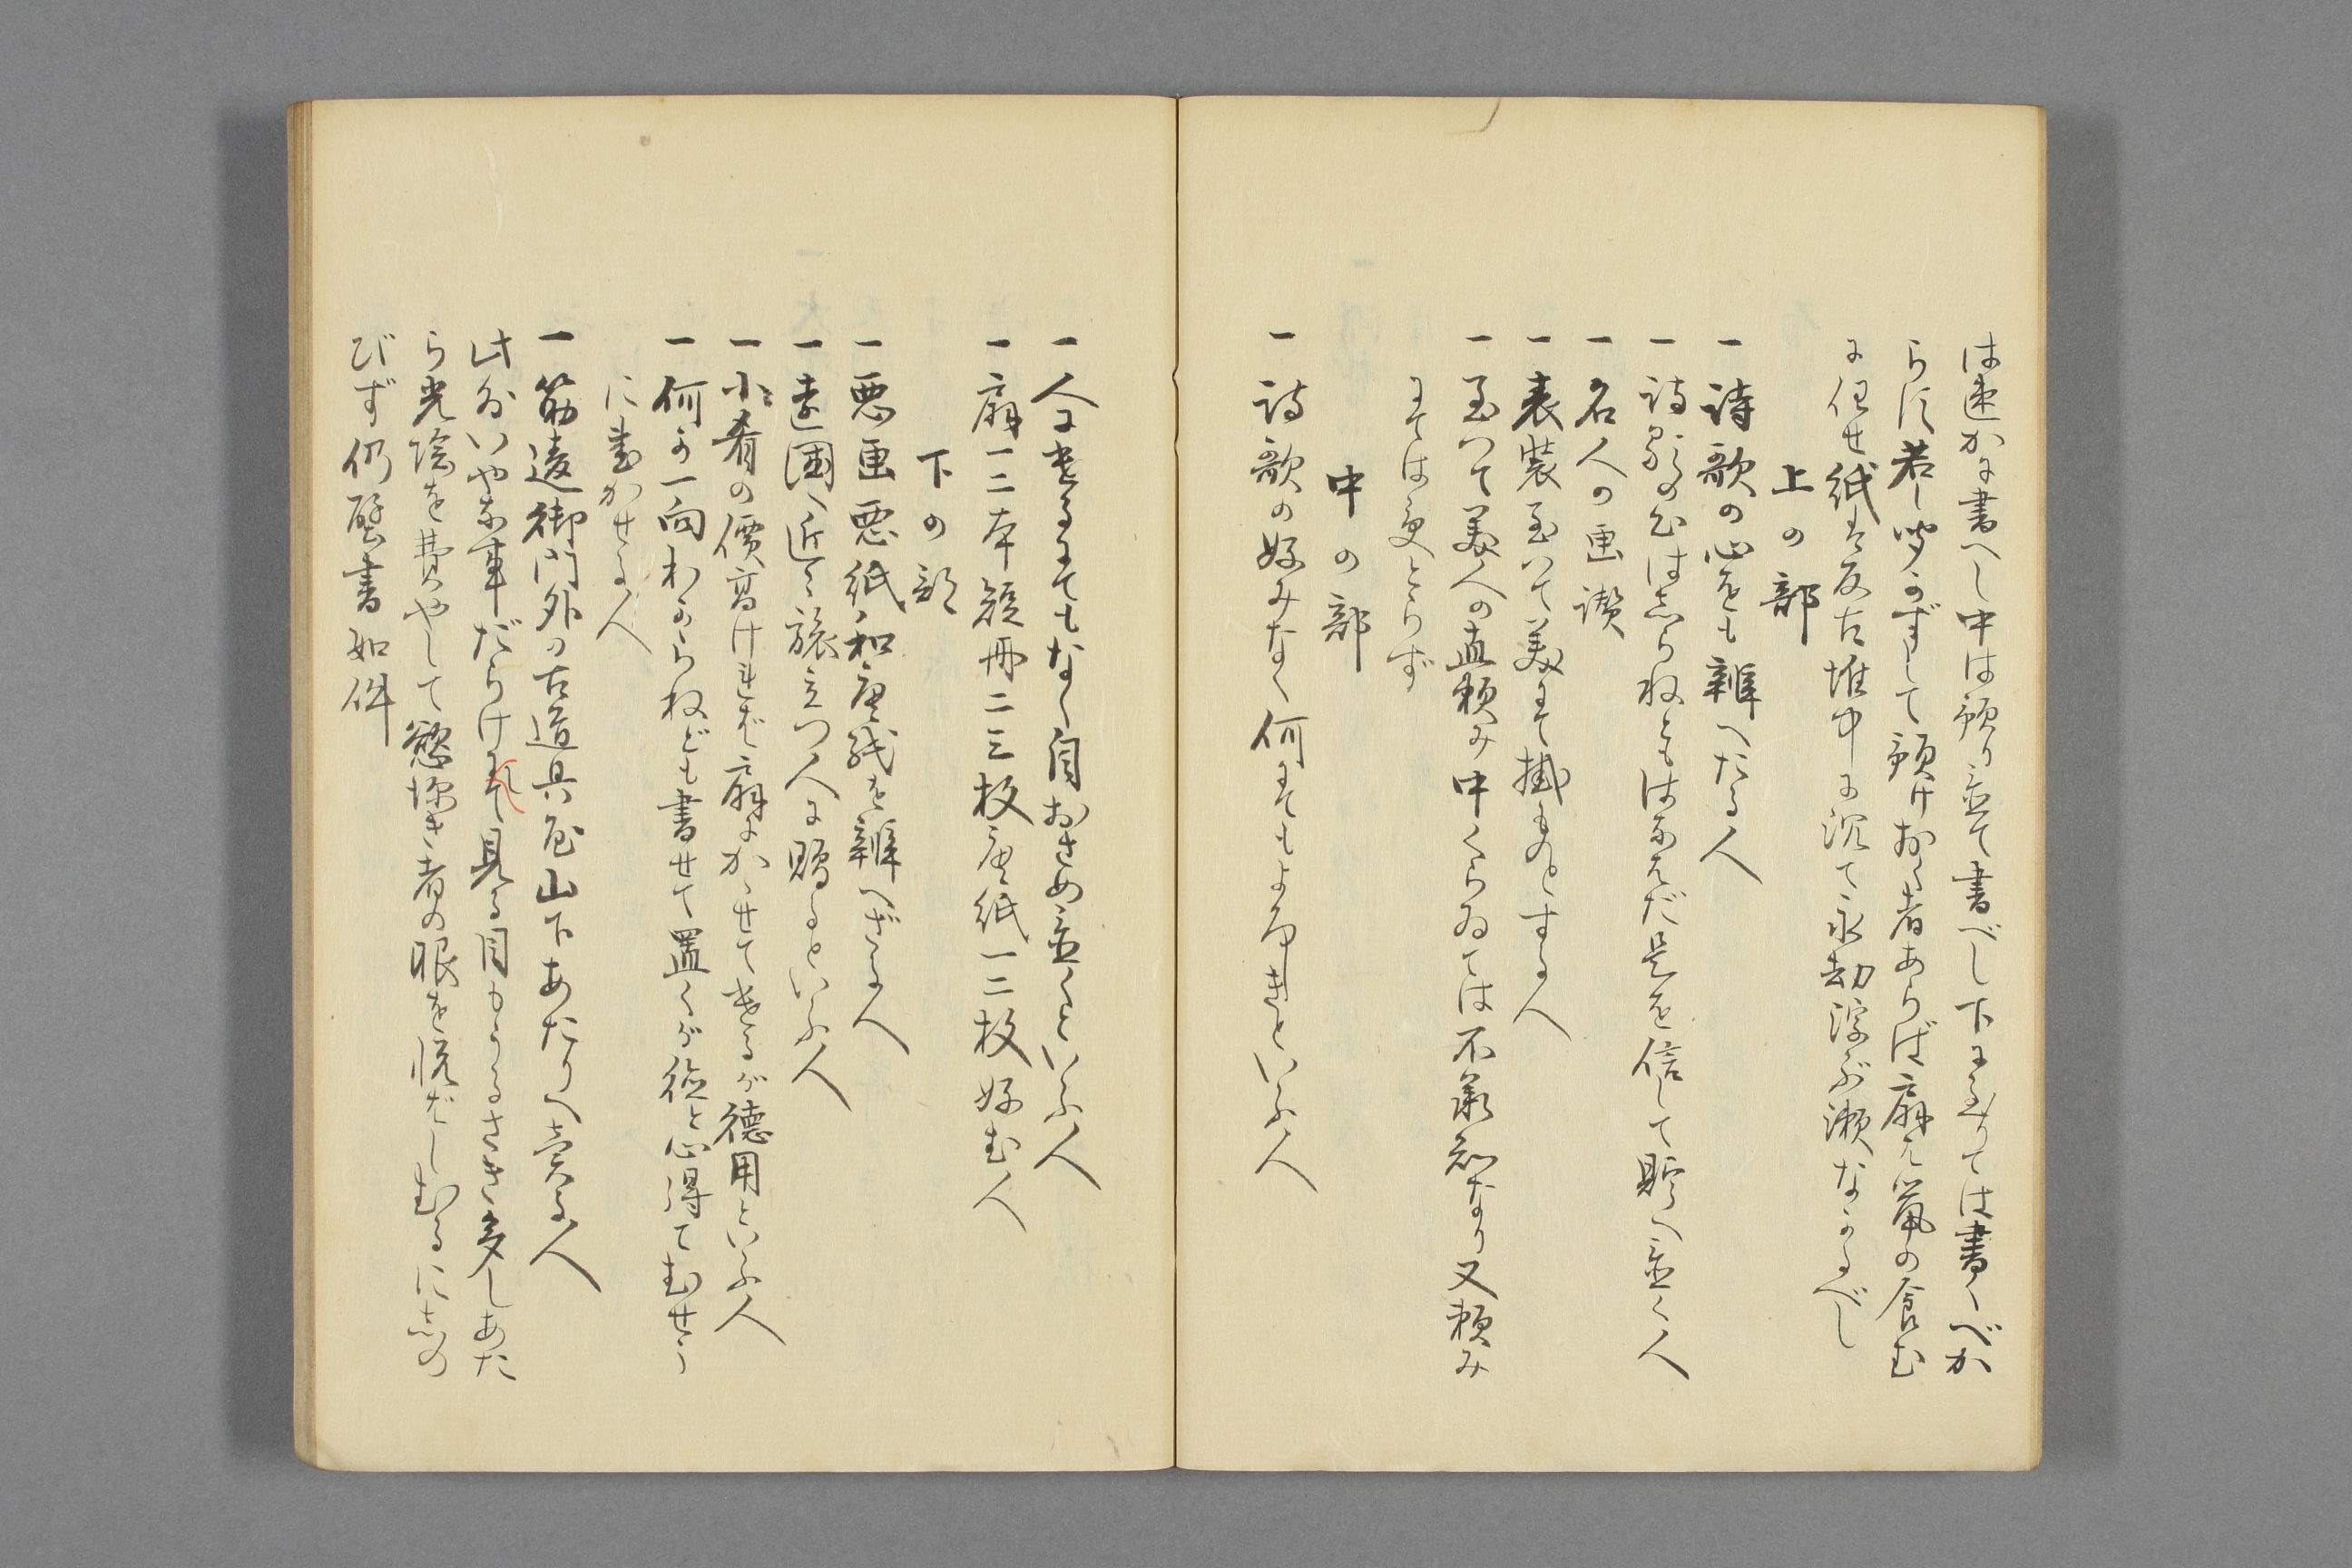 は速かに書へし中は預り置て書べし下に至りては書くべか
らす若し聞かずして預けおく者あらば扇は鼠の食む
に任せ紙は反古堆中に沈て永劫浮ぶ瀬なかるべし
上の部
一 詩歌の心をも辨へたる人
一 詩歌の心はしらねともはなはだ是を信して貯へ置く人
一 名人の画讃
一 表装至つて美にて掛ものとする人
一 至つて美人の直頼み中くらゐては不承知なり又頼み
にては更にとらず
中の部
一 詩歌の好みなく何にてもよろしきといふ人
一 人に遣るにてもなく自おさめ置くといふ人
一 扇一二本短冊二三枚唐紙一二枚好む人
下の部
一 悪画悪紙和唐紙を辨へざる人
一 遠国へ近々旅立つ人に贈るといふ人
一 小肴の價高ければ扇にかゝせて遣るが徳用といふ人
一 何か一向わからねども書せて置くが徳と心得てむせう
に書かせる人
一 筋違御門外の古道具屋山下あたりへ売る人
此外いやな事だらけにて見る目もうるさき多しあた
ら光陰を費やして慾深き者の眼を悦だしむるにしの
びず仍壁書如件